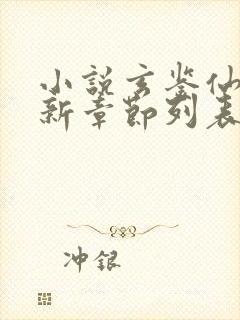 小说玄鉴仙
新章节列表
冲银